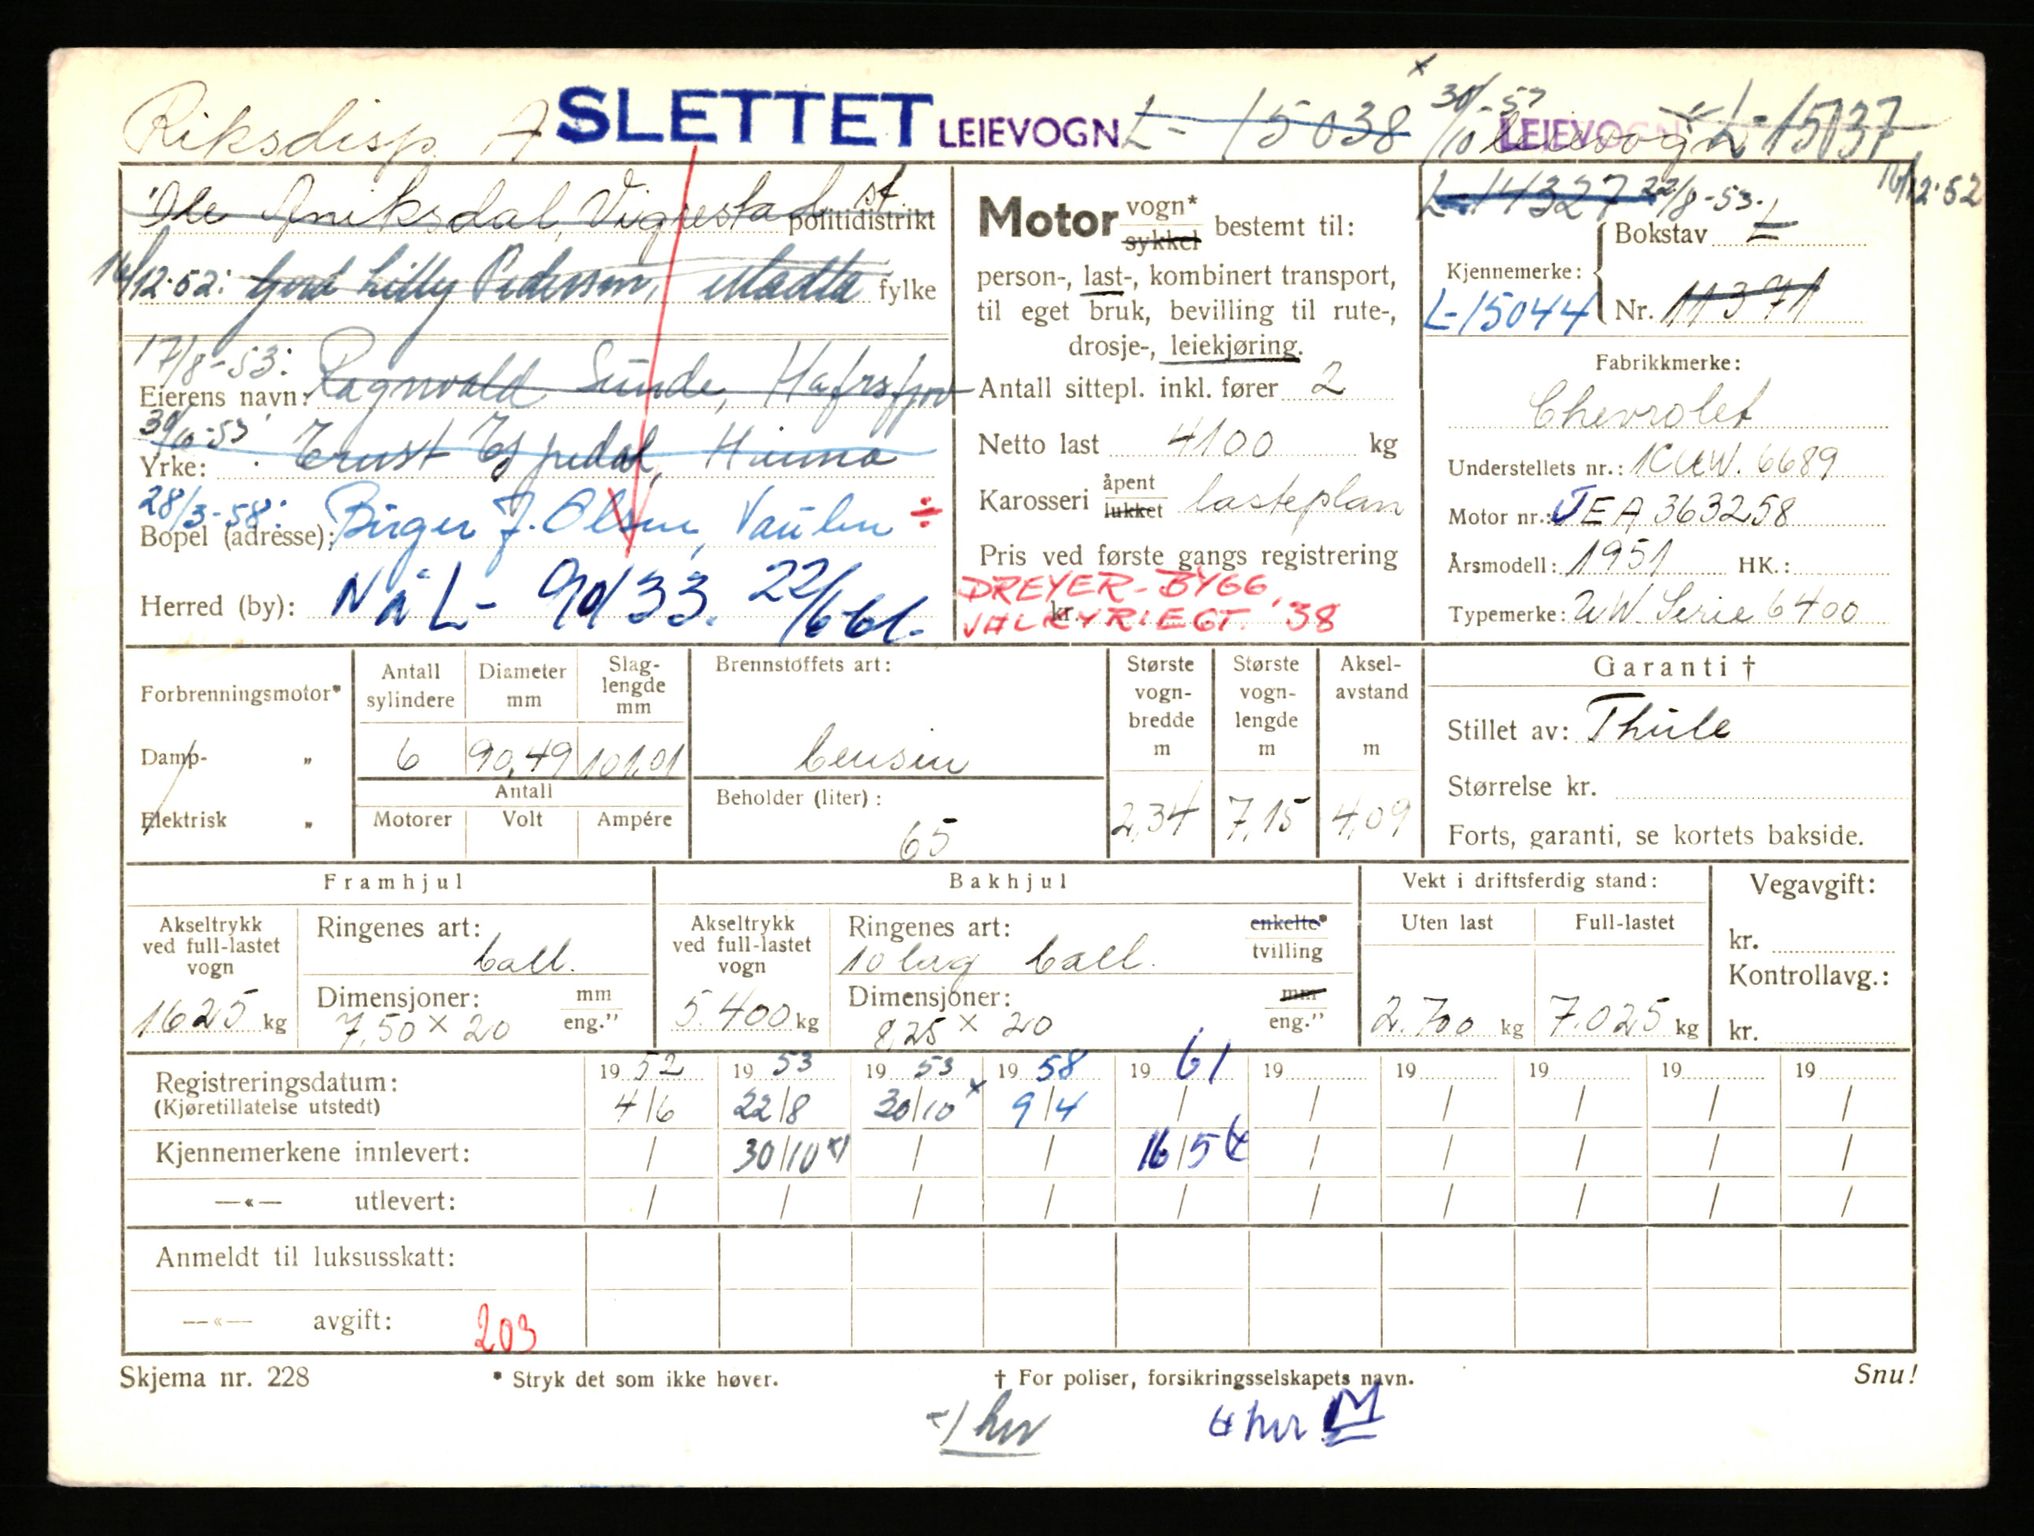 Riksdisp. A SLETTET LEIEVOGN L-15038 30/10-53 LEIEVOGN leievogn L-15037
Ole Aniksdal, Vigrestad st. politidistrikt
16/12-52: Gerd Lilly Pedersen, Madla fylke
17/8-53: Ragnvald Sunde, Hafrsfjord
Eierens navn:
30/10-53 Ernst Espedal, Hinna
Yrke:
28/3-58: Birger J. Olsen, Vaulen ÷
Bopel (adresse):
Herred (by): NÅ L- 90133. 22/6-61.
Motor vogn* sykkel bestemt til:
person-, last-, kombinert transport,
til eget bruk, bevilling til rute-,
drosje-, leiekjøring.
Antall sittepl. inkl. fører 2
Netto last 4100 kg
Karosseri åpent lukket lasteplan
Pris ved første gangs registrering
DREYER-BYGG,
kr. VALKYRIEGT. '38
L-14327 22/8-53. 16/12-52
Kjennemerke: Bokstav L
L-15044 Nr. 11371
Fabrikkmerke:
Chevrolet
Understellets nr.: 1CUW. 6689
Motor nr.: JEA 363258
Årsmodell: 1951 HK.:
Typemerke: UW Serie 6400
Forbrenningsmotor*
Damp- „
Elektrisk „
Antall sylindere 6
Diameter mm 90,49
Slag-lengde mm 101,01
Antall
Motorer Volt Ampére
Brennstoffets art:
bensin
Beholder (liter):
65
Største vogn-bredde m 2,34
Største vogn-lengde m 7,15
Aksel-avstand m 4,09
Garanti †
Stillet av: Thule
Størrelse kr.
Forts, garanti, se kortets bakside.
Framhjul
Akseltrykk ved full-lastet vogn 1625 kg
Ringenes art: ball.
Dimensjoner: mm eng.” 7,50 x 20
Bakhjul
Akseltrykk ved full-lastet vogn 5.400 kg
Ringenes art: enkelte* tvilling
10 lag ball.
Dimensjoner: mm eng.” 8,25 x 20
Vekt i driftsferdig stand:
Uten last 2.700 kg
Full-lastet 7.025 kg
Vegavgift:
kr.
Kontrollavg.:
kr.
Registreringsdatum: 1952 1953 1953 1958 1961 19 19 19 19 19
(Kjøretillatelse utstedt) 4/6 22/8 30/10 x 9/4 / / / / / /
Kjennemerkene innlevert: / 30/10 x) / / 16/5 / / / / /
—«— utlevert: / / / / / / / / / /
Anmeldt til luksusskatt:
—«— avgift: 203
Skjema nr. 228 * Stryk det som ikke høver. † For poliser, forsikringsselskapets navn. Snu!